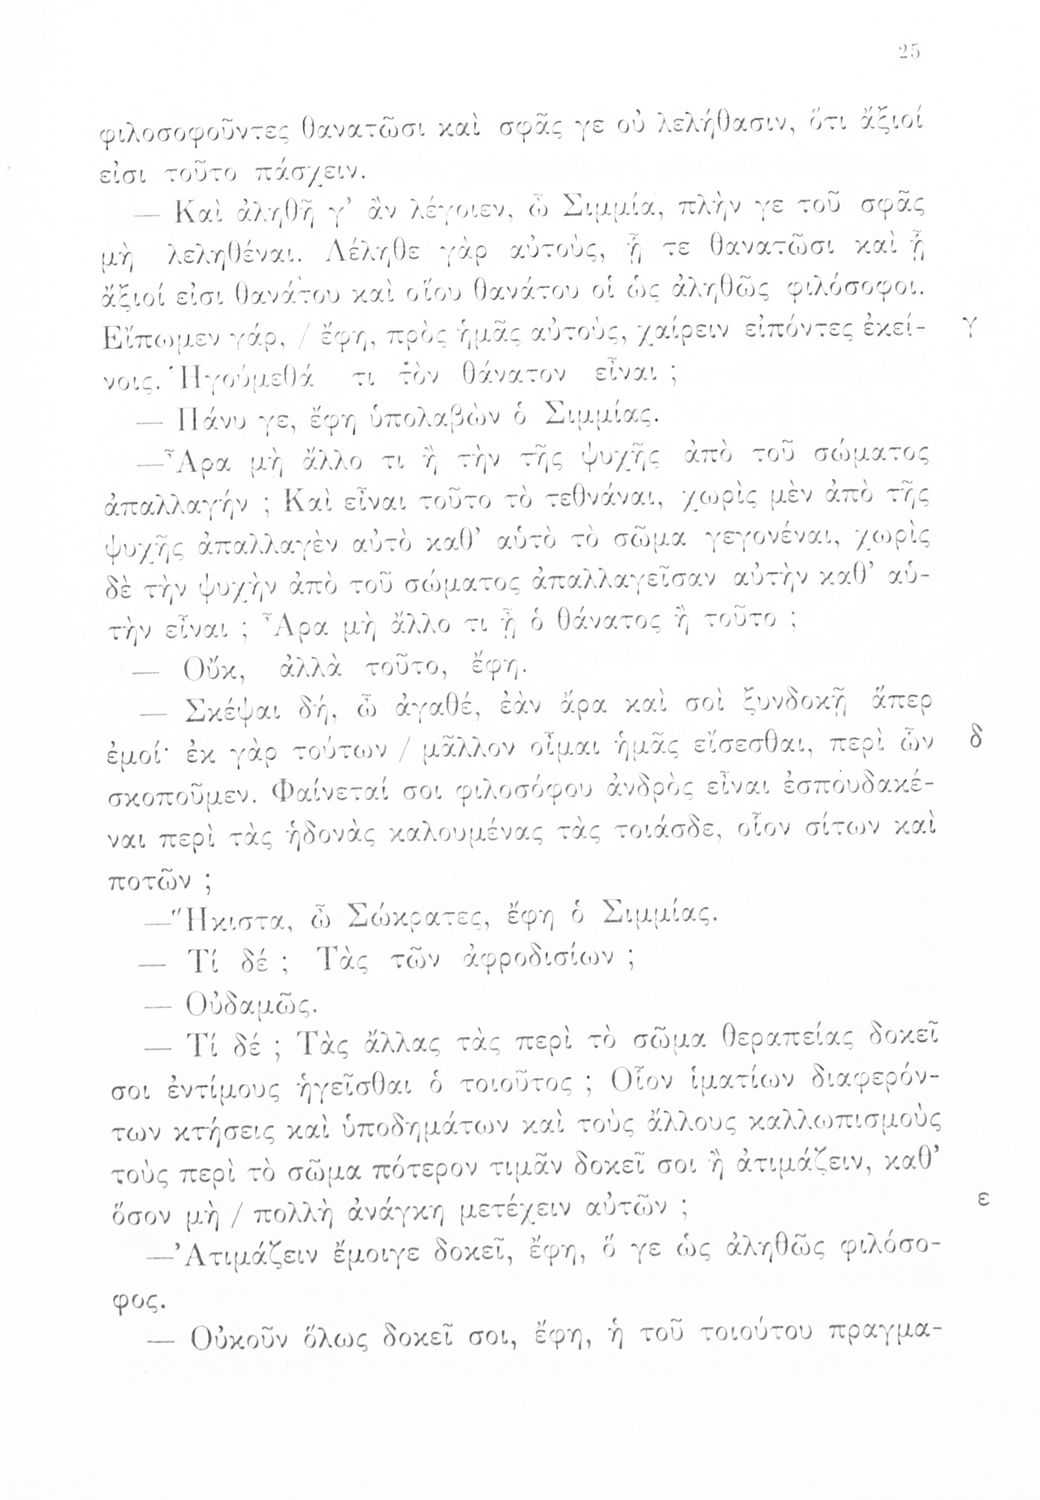 25
φιλοσοφοῦντες θανατῶσι καὶ σφᾶς γε οὐ λελήθασιν, ὅτι ἄξιοί
εἰσι τοῦτο πάσχειν.
— Καὶ ἀληθῆ γ’ ἂν λέγοιεν, ὦ Σιμμία, πλὴν γε τοῦ σφᾶς
μὴ λεληθέναι. Λέληθε γὰρ αὐτοὺς, ᾗ τε θανατῶσι καὶ ᾗ
ἄξιοί εἰσι θανάτου καὶ οἵου θανάτου οἱ ὡς ἀληθῶς φιλόσοφοι.
Εἴπωμεν γάρ, / ἔφη, πρὸς ἡμᾶς αὐτούς, χαίρειν εἰπόντες ἐκεί- γ
νοις. Ἡγούμεθά τι τὸν θάνατον εἶναι ;
— Πάνυ γε, ἔφη ὑπολαβὼν ὁ Σιμμίας.
—Ἆρα μὴ ἄλλο τι ἢ τὴν τῆς ψυχῆς ἀπὸ τοῦ σώματος
ἀπαλλαγήν ; Καὶ εἶναι τοῦτο τὸ τεθνάναι, χωρὶς μὲν ἀπὸ τῆς
ψυχῆς ἀπαλλαγὲν αὐτὸ καθ’ αὑτὸ τὸ σῶμα γεγονέναι, χωρὶς
δὲ τὴν ψυχὴν ἀπὸ τοῦ σώματος ἀπαλλαγεῖσαν αὐτὴν καθ’ αὑ-
τὴν εἶναι ; Ἆρα μὴ ἄλλο τι ᾖ ὁ θάνατος ἢ τοῦτο ;
— Οὔκ, ἀλλὰ τοῦτο, ἔφη.
— Σκέψαι δή, ὦ ἀγαθέ, ἐὰν ἄρα καὶ σοὶ ξυνδοκῇ ἅπερ
ἐμοί· ἐκ γὰρ τούτων / μᾶλλον οἶμαι ἡμᾶς εἴσεσθαι, περὶ ὧν δ
σκοποῦμεν. Φαίνεταί σοι φιλοσόφου ἀνδρὸς εἶναι ἐσπουδακέ-
ναι περὶ τὰς ἡδονὰς καλουμένας τὰς τοιάσδε, οἷον σίτων καὶ
ποτῶν ;
—Ἥκιστα, ὦ Σώκρατες, ἔφη ὁ Σιμμίας.
— Τί δέ ; Τὰς τῶν ἀφροδισίων ;
— Οὐδαμῶς.
— Τί δέ ; Τὰς ἄλλας τὰς περὶ τὸ σῶμα θεραπείας δοκεῖ
σοι ἐντίμους ἡγεῖσθαι ὁ τοιοῦτος ; Οἷον ἱματίων διαφερόν-
των κτήσεις καὶ ὑποδημάτων καὶ τοὺς ἄλλους καλλωπισμοὺς
τοὺς περὶ τὸ σῶμα πότερον τιμᾶν δοκεῖ σοι ἢ ἀτιμάζειν, καθ’
ὅσον μὴ / πολλὴ ἀνάγκη μετέχειν αὐτῶν ; ε
—Ἀτιμάζειν ἔμοιγε δοκεῖ, ἔφη, ὅ γε ὡς ἀληθῶς φιλόσο-
φος.
— Οὐκοῦν ὅλως δοκεῖ σοι, ἔφη, ἡ τοῦ τοιούτου πραγμα-